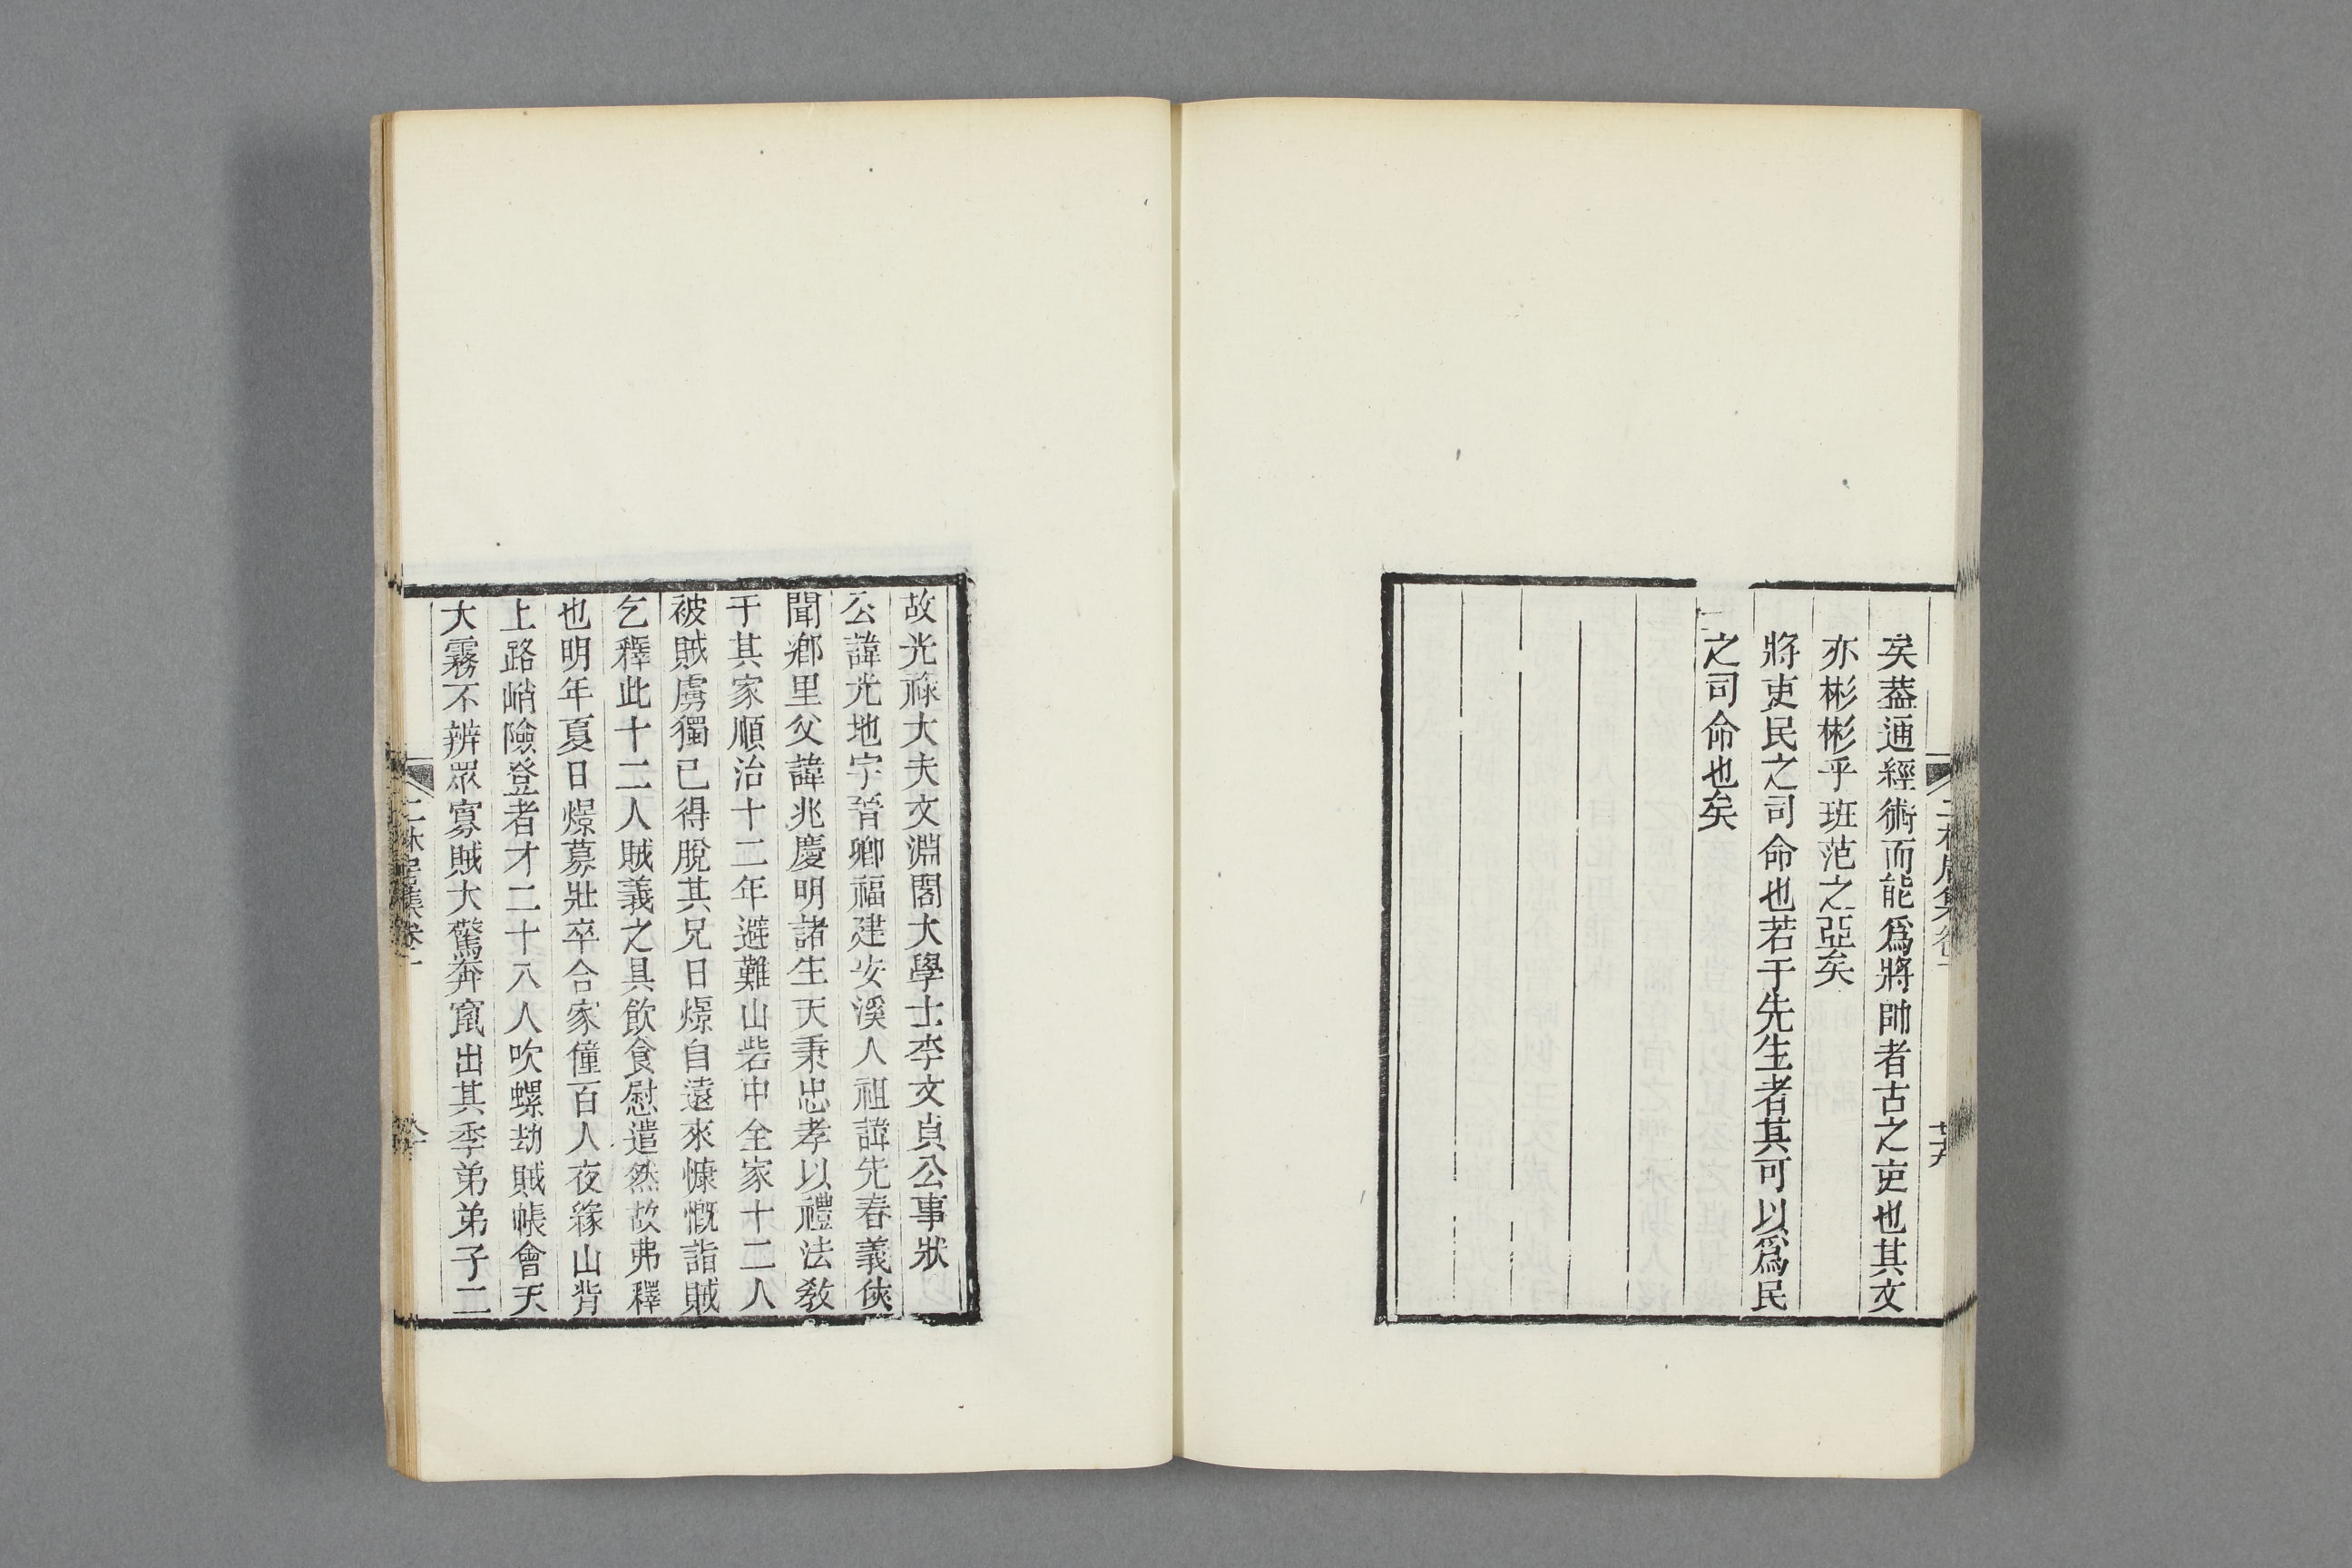 矣葢通經術而能爲將帥者古之吏也其文
亦彬彬乎班范之亞矣
將吏民之司命也若于先生者其可以爲民
之司命也矣
故光祿大夫文淵閣大學士李文貞公事狀
公諱光地字晉卿福建安溪人祖諱先春義俠
聞鄉里父諱兆慶明諸生天秉忠孝以禮法敎
于其家順治十二年避難山砦中全家十二人
被賊虜獨已得脫其兄日燝自遠來慷慨詣賊
乞釋此十二人賊義之具飲食慰遣然故弗釋
也明年夏日燝募壯卒合家僮百人夜緣山背
上路峭險登者才二十八人吹螺劫賊帳會天
大霧不辨眾寡賊大驚奔竄出其季弟弟子二
二林居集卷十